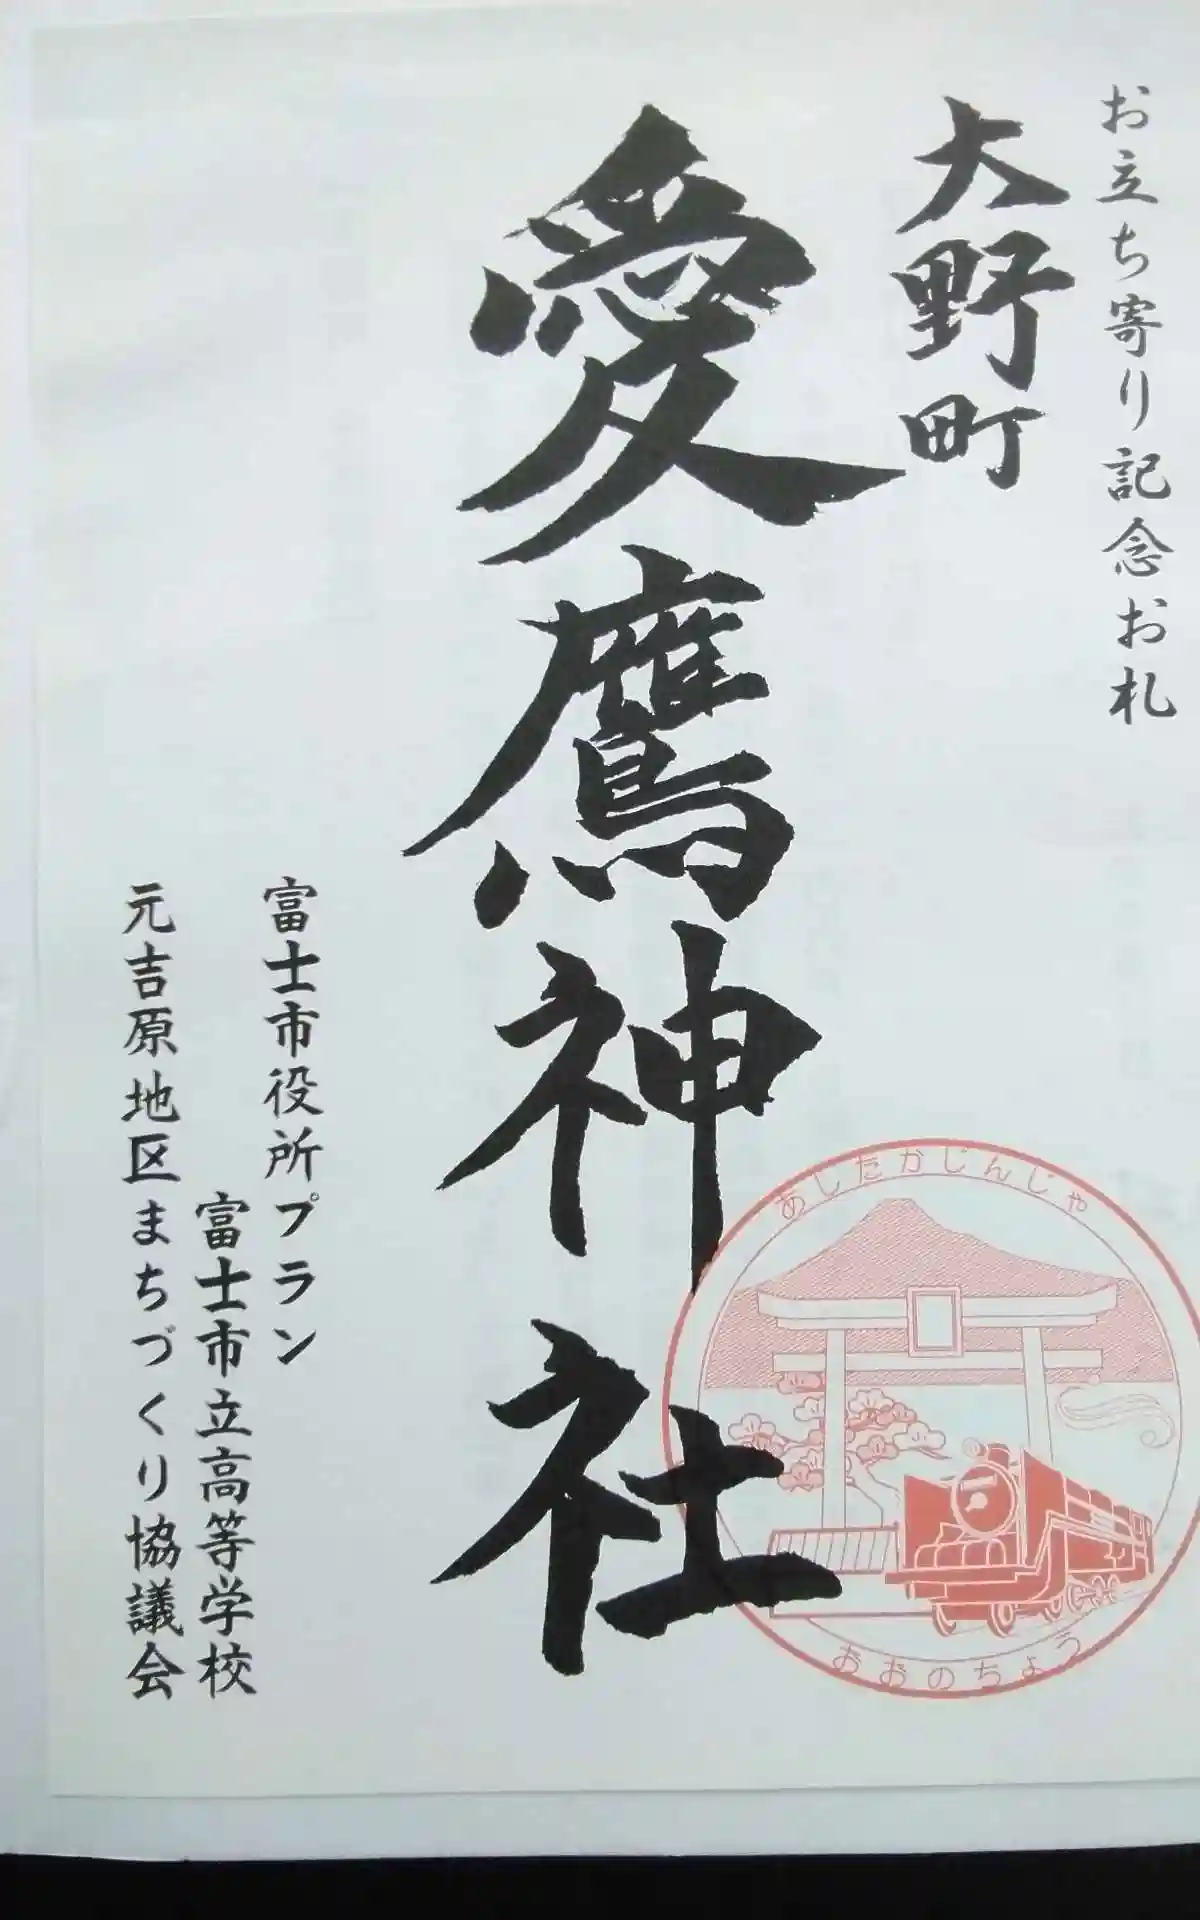 お立ち寄り記念お札
大野町
愛鷹神社
あしたかじんじゃ
おおのちょう
富士市役所プラン
富士市立高等学校
元吉原地区まちづくり協議会